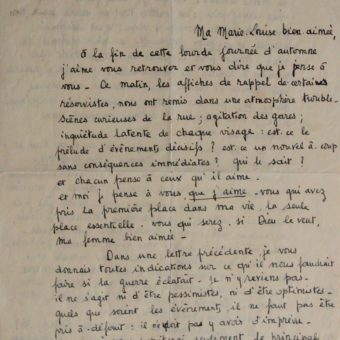 Ma Marie-Louise bien aimée,
à la fin de cette lourde journée d'automne
j'aime vous retrouver et vous dire que je pense à
vous - Ce matin, les affiches de rappel de certaines
réservistes, nous ont remis dans une atmosphère trouble -
scènes curieuses de la rue ; agitation des gares ;
inquiétude latente de chaque visage : est-ce le
prélude d'événements décisifs ? est-ce un nouvel à-coup
sans conséquences immédiates ? qui le sait ?
et chacun pense à ceux qu'il aime -
et moi je pense à vous que j'aime - vous qui avez
pris la première place dans ma vie, la seule
place essentielle - vous qui serez, si Dieu le veut,
ma femme bien aimée -
Dans une lettre précédente, je vous
donnais toutes indications sur ce qu'il nous faudrait
faire si la guerre éclatait - Je n'y reviens pas -
il ne s'agit ni d'être pessimistes, ni d'être optimistes -
quels que soient les événements, il ne faut pas être
pris à défaut : il ne doit pas y avoir d'imprévu -
le principal